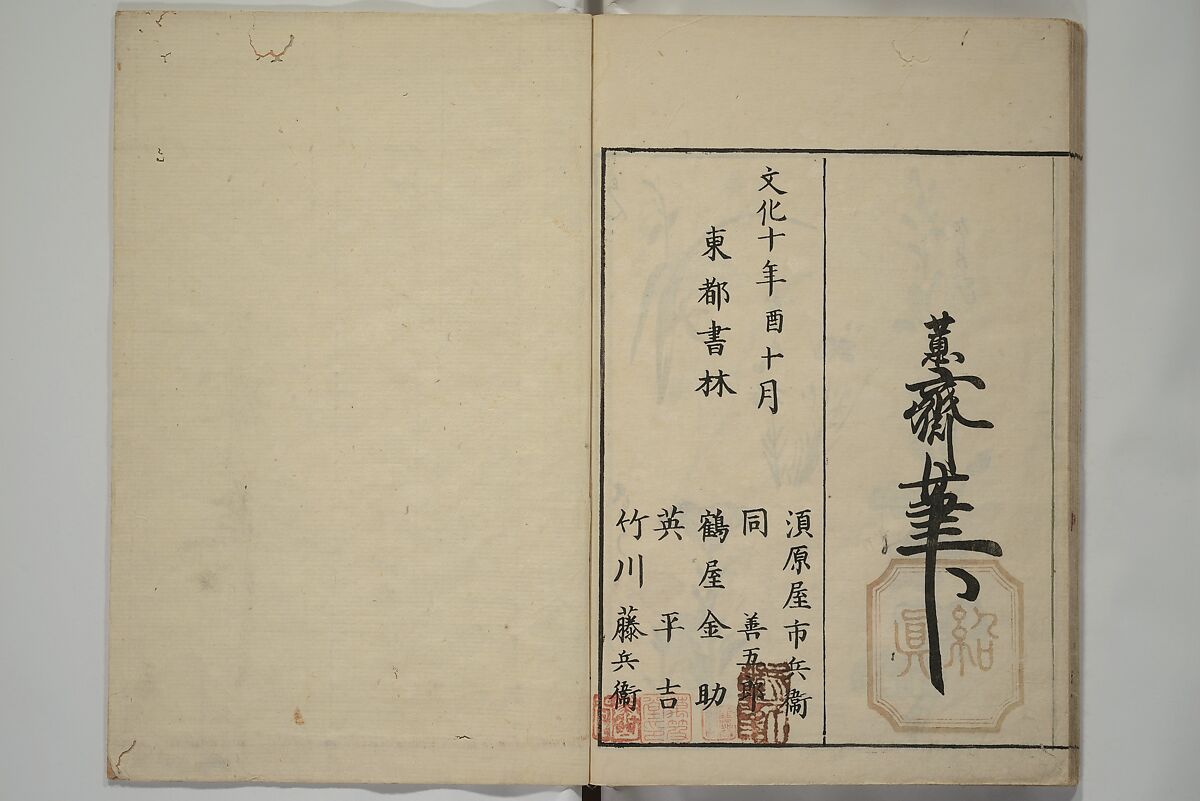 蕙齋筆
紹真
文化十年酉十月
東都書林
須原屋市兵衞
同善五郎
鶴屋金助
英平吉
竹川藤兵衞